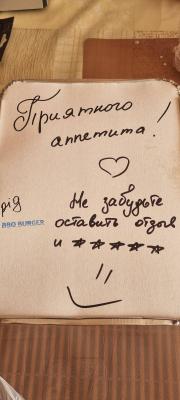 Приятного
аппетита!
Не забудьте
BBQ BURGER
оставить отзыв
и ★★★★★